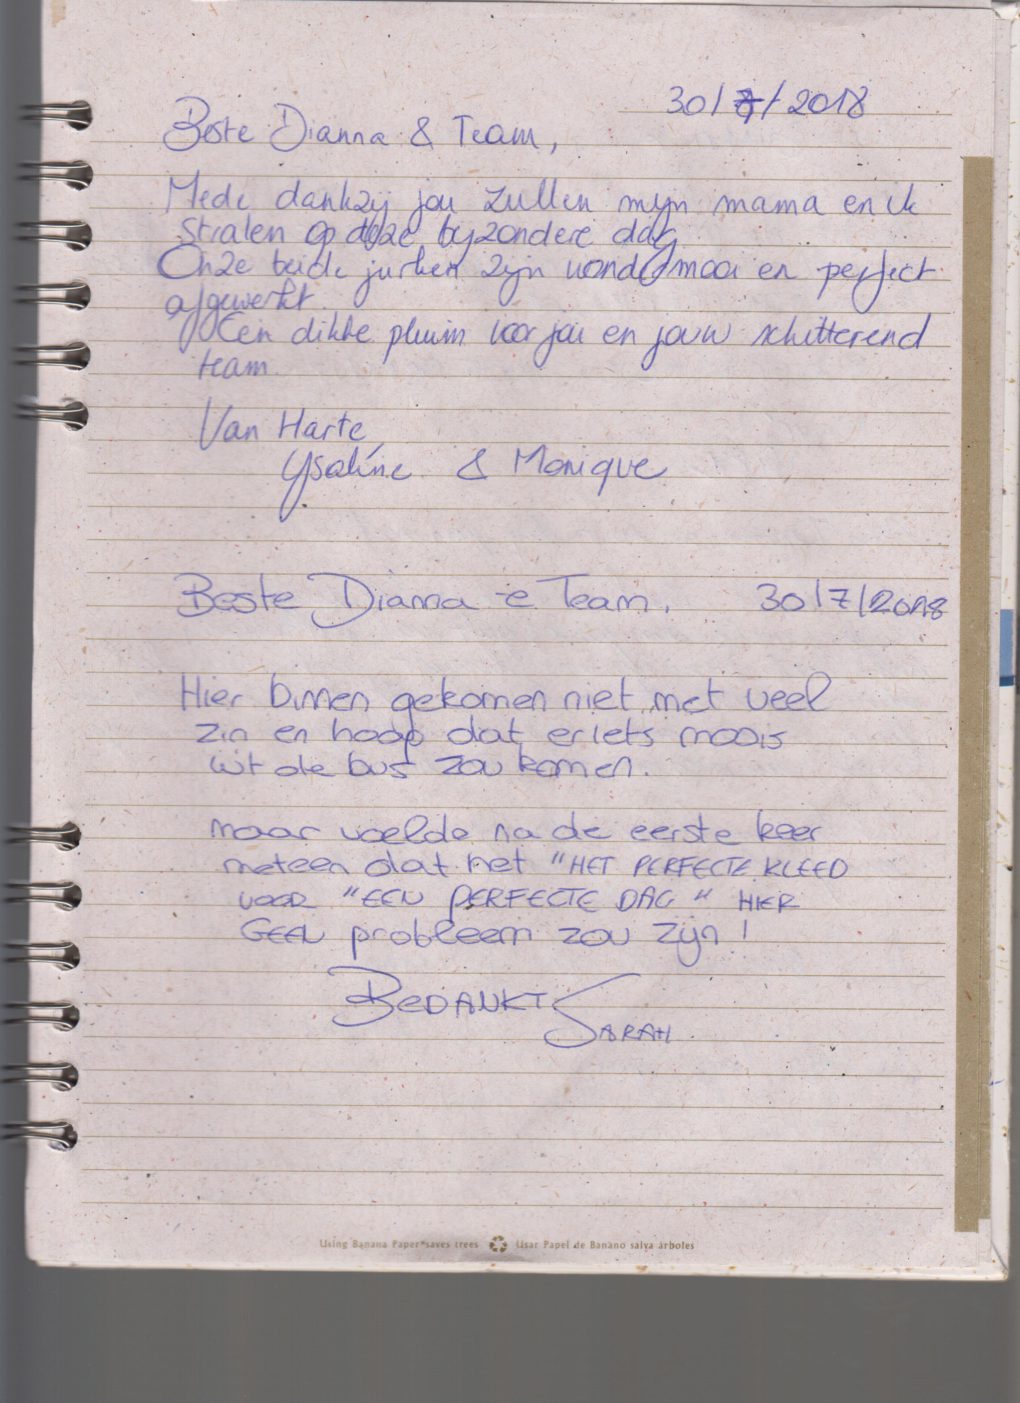 30/7/2018
Beste Dianna & Team,
Mede dankzij jou zullen mijn mama en ik
stralen op deze bijzondere dag
Onze beide jurken zijn wondermooi en perfect
afgewerkt.
Een dikke pluim voor jou en jouw schitterend
team.
Van Harte,
Ysaline & Monique
Beste Dianna e Team, 30/7/2018
Hier binnen gekomen niet met veel
zin en hoop dat er iets moois
uit de bus zou komen.
maar voelde na de eerste keer
meteen dat het "HET PERFECTE KLEED
VOOR "EEN PERFECTE DAG" HIER
GEEN probleem zou zijn!
BEDANKT SARAH
Using Banana Paper*saves trees Usar Papel de Banano salva árboles